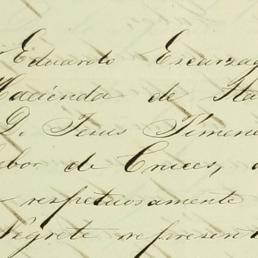 Eduardo Escarza
Hacienda de Sta
D. Jesus Jimene
Labor de Cruces,
respetuosamente
Negrete represent